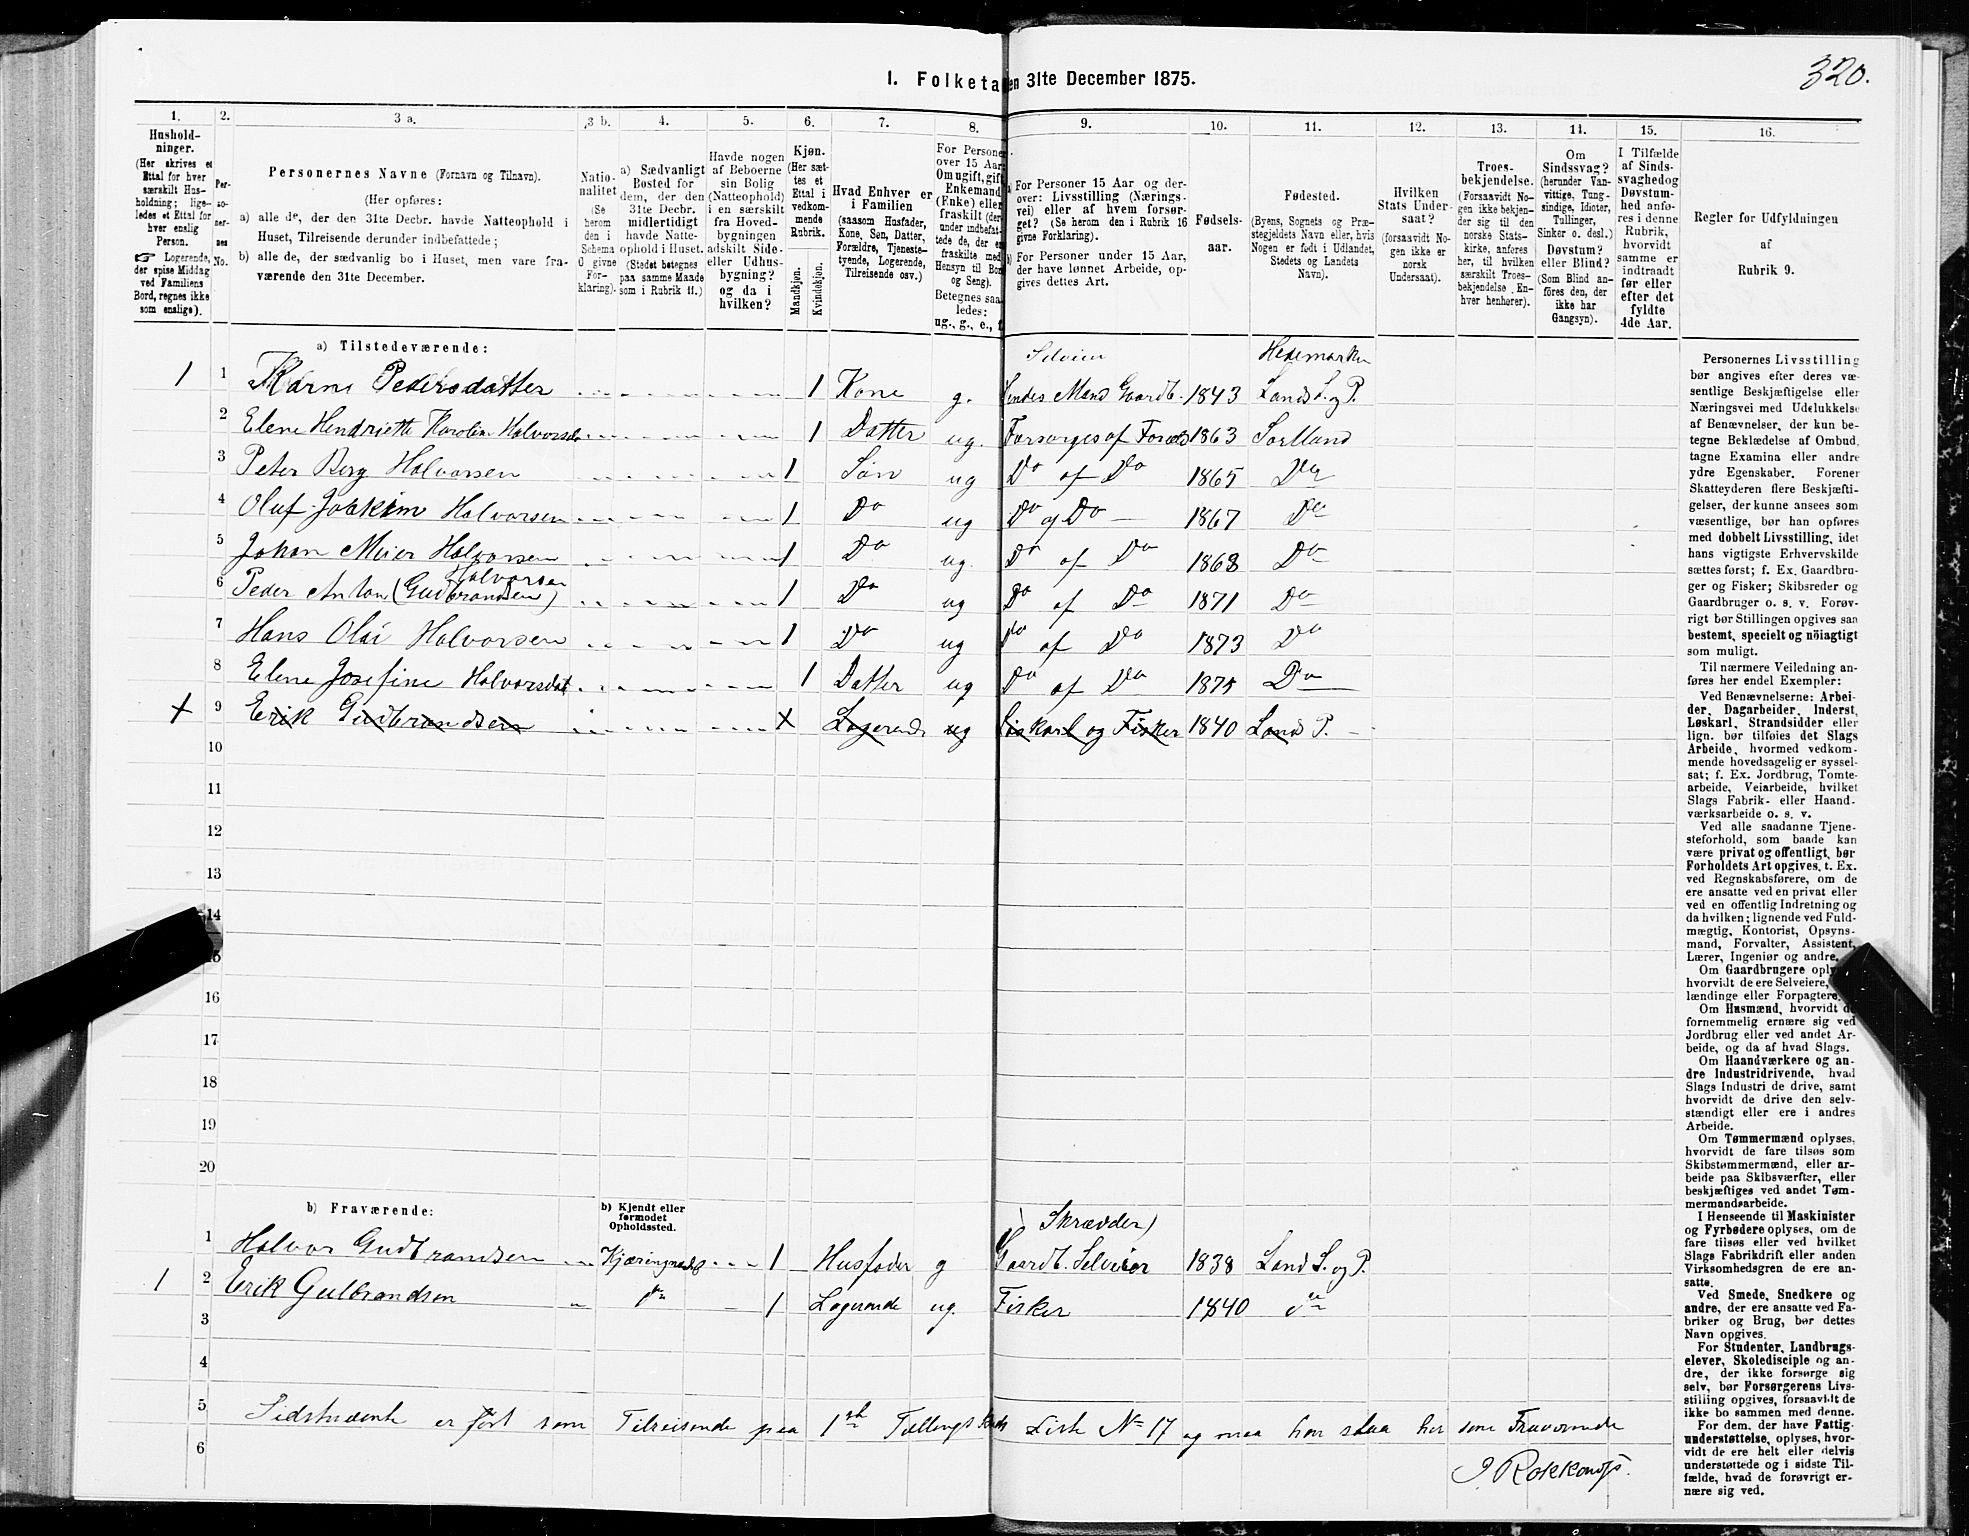 320.
I. Folketa en 31te December 1875.
1. 2. 3 a. 3 b. 4. 5. 6. 7. 8. 9. 10. 11. 12. 13. 14. 15. 16.
Hushold-
ninger.
(Her skrives et
Ettal for hver
særskilt Hus-
holdning; lige-
ledes et Ettal for
hver enslig
Person.
☞ Logerende,
der spise Middag
ved Familiens
Bord, regnes ikke
som enslige).
Per-
so-
ner-
nes
No.
Personernes Navne (Fornavn og Tilnavn).
(Her opføres:
a) alle de, der den 31te Decbr. havde Natteophold i
Huset, Tilreisende derunder indbefattede;
b) alle de, der sædvanlig bo i Huset, men vare fra-
værende den 31te December.
Natio-
nalitet
(Se
herom
den i
Schema
O givne
For-
klaring).
a) Sædvanligt
Bosted for
dem, der den
31te Decbr.
midlertidigt
havde Natte-
ophold i Huset.
(Stedet betegnes
paa samme Maade
som i Rubrik 11.)
Havde nogen
af Beboerne
sin Bolig
(Natteophold)
i en særskilt
fra Hoved-
bygningen
adskilt Side-
eller Udhus-
bygning?
og da i
hvilken?
Kjøn.
(Her sæt-
tes et
Ettal i
vedkom-
mende
Rubrik.
Mandkjøn.
Kvindekjøn.
Hvad Enhver er
i Familien
(saasom Husfader,
Kone, Søn, Datter,
Forældre, Tjeneste-
tyende, Logerende,
Tilreisende osv.)
For Persone
over 15 Aar
Om ugift, gift
Enkemand
(Enke) eller
fraskilt (der
under indbefat-
tede de, der e
fraskilte med
Hensyn til Bo
og Seng).
Betegnes saa
ledes:
ug., g., e., f.
a) For Personer 15 Aar og der-
over: Livsstilling (Nærings-
vei) eller af hvem forsør-
get? (Se herom den i Rubrik 16
givne Forklaring).
b) For Personer under 15 Aar,
der have lønnet Arbeide, op-
gives dettes Art.
Fødsels-
aar.
Fødested.
(Byens, Sognets og Præ-
stegjeldets Navn eller, hvis
Nogen er født i Udlandet,
Stedets og Landets
Navn).
Hvilken
Stats Under-
saat?
(forsaavidt No-
gen ikke er
norsk
Undersaat).
Troes-
bekjendelse.
(Forsaavidt No-
gen ikke bekjen-
der sig til den
norske Stats-
kirke, anføres
her, til hvilken
særskilt Troes-
bekjendelse En-
hver henhører).
Om
Sindssvag?
(herunder Van-
vittige, Tung-
sindige, Idioter,
Tullinger,
Sinker o. desl.)
Døvstum?
eller Blind?
(Som Blind an-
føres den, der
ikke har
Gangsyn).
I Tilfælde
af Sinds-
svaghed og
Døvstum-
hed anfø-
res i denne
Rubrik,
hvorvidt
samme er
indtraadt
før eller
efter det
fyldte
4de Aar.
Regler for Udfyldningen
af
Rubrik 9.
a) Tilstedeværende:
Selveier Hedemarken
1 1 Karne Pedersdatter 1 Kone g. Hendes Mand Gaardb. 1843 Lands S. og P.
2 Elene Hendriette Karoline Halvorsdr 1 Datter ug. Forsørges af Foræld 1863 Sortland
3 Peter Berg Halvorsen 1 Søn ug Do af Do 1865 Do
4 Oluf Joakim Halvorsen 1 Do ug Do af Do 1867 Do
5 Johan Meier Halvorsen 1 Do ug. Do af Do 1868 Do
Halvorsen
6 Peder Anton (Gudbrandsen) 1 Do ug Do af Do 1871 Do
7 Hans Olai Halvorsen 1 Do ug Do af Do 1873 Do
8 Elene Josefine Halvorsdat 1 Datter ug Do af Do 1875 Do
9 Erik Gudbrandsen Logerende ug Løskarl og Fisker 1840 Land P.
10
11
12
13
14
15
16
17
18
19
20
b) Fraværende:
b) Kjendt eller
formodet
Opholdssted.
Skrædder)
1 Halvor Gudbrandsen Kjæringnæs 1 Husfader g Gaardb. Selveier 1838 Land S. og P.
1 2 Erik Gulbrandsen do 1 Logerende ug. Fisker 1840 do
3
4
5 Sidstnævnte er ført som Tilreisende paa 1ste Tællings Kreds Liste No 17 og maa her staa her som Fraværende
6
J. Rokkones.
Personernes Livsstilling
bør angives efter deres væ-
sentlige Beskjæftigelse eller
Næringsvei med Udelukkelse
af Benævnelser, der kun be-
tegne Beklædelse af Ombud,
tagne Examina eller andre
ydre Egenskaber. Forener
Skatteyderen flere Beskjæfti-
gelser, der kunne ansees som
væsentlige, bør han opføres
med dobbelt Livsstilling, idet
hans vigtigste Erhvervskilde
sættes først; f. Ex. Gaardbru-
ger og Fisker; Skibsreder og
Gaardbruger o. s. v. Forøv-
rigt bør Stillingen opgives saa
bestemt, specielt og nöiagtigt
som muligt.
Til nærmere Veiledning an-
føres her endel Exempler:
Ved Benævnelserne: Arbei-
der, Dagarbeider, Inderst,
Løskarl, Strandsidder eller
lign. bør tilføies det Slags
Arbeide, hvormed vedkom-
mende hovedsagelig er syssel-
sat; f. Ex. Jordbrug, Tomte-
arbeide, Veiarbeide, hvilket
Slags Fabrik- eller Haand-
værksarbeide o. s. v.
Ved alle saadanne Tjene-
steforhold, som baade kan
være privat og offentligt, bør
Forholdets Art opgives, t. Ex.
ved Regnskabsførere, om de
ere ansatte ved en privat eller
ved en offentlig Indretning og
da hvilken; lignende ved Fuld-
mægtig, Kontorist, Opsyns-
mand, Forvalter, Assistent,
Lærer, Ingeniør og andre.
Om Gaardbrugere oply
hvorvidt de ere Selveiere,
lændinge eller Forpagtere.
Om Husmænd, hvorvidt de
fornemmelig ernære sig ved
Jordbrug eller ved andet Ar-
beide, og da af hvad Slags.
Om Haandværkere og an-
dre Industridrivende, hvad
Slags Industri de drive, samt
hvorvidt de drive den selv-
stændigt eller ere i andres
Arbeide.
Om Tømmermænd oplyses,
hvorvidt de fare tilsøs som
Skibstømmermænd, eller ar-
beide paa Skibsværfter, eller
beskjæftiges ved andet Tøm-
mermandsarbeide.
I Henseende til Maskinister
og Fyrbødere oplyses, om de
fare tilsøs eller ved hvilket
Slags Fabrikdrift eller anden
Virksomhedsgren de ere an-
satte.
Ved Smede, Snedkere og
andre, der ere ansatte ved Fa-
briker og Brug, bør dettes
Navn opgives.
For Studenter, Landbrugs-
elever, Skoledisciple og an-
dre, der ikke forsørge sig
selv, bør Forsørgerens Livs-
stilling opgives, forsaavidt de
ikke bo sammen med denne.
For dem, der have Fattig-
understøttelse, oplyses, hvor-
vidt de ere helt eller delvis
understøttede og i sidste Til-
fælde, hvad de forøvrigt er-
nære sig ved.